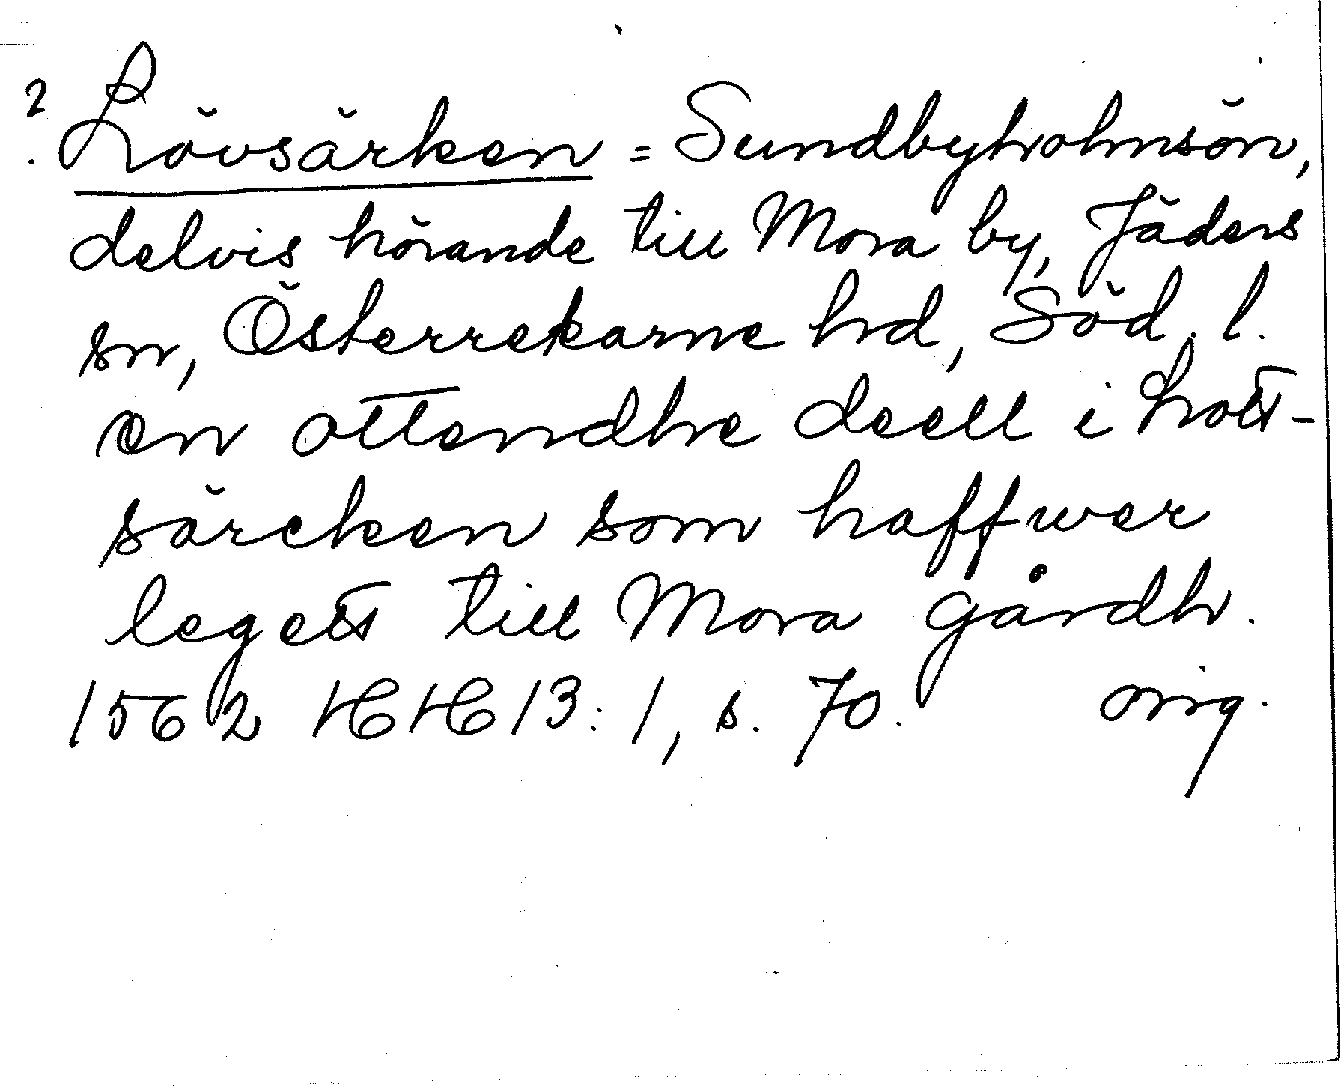 ? Lövsärken = Sundbyholmsön,
delvis hörande till Mora by, Jäders
sn, Österrekarne hd, Söd. l.
en ottendhe deell i
särcken som haffwer
legett till Mora gårdh.
1562 HH 13:1, s. 70. orig.